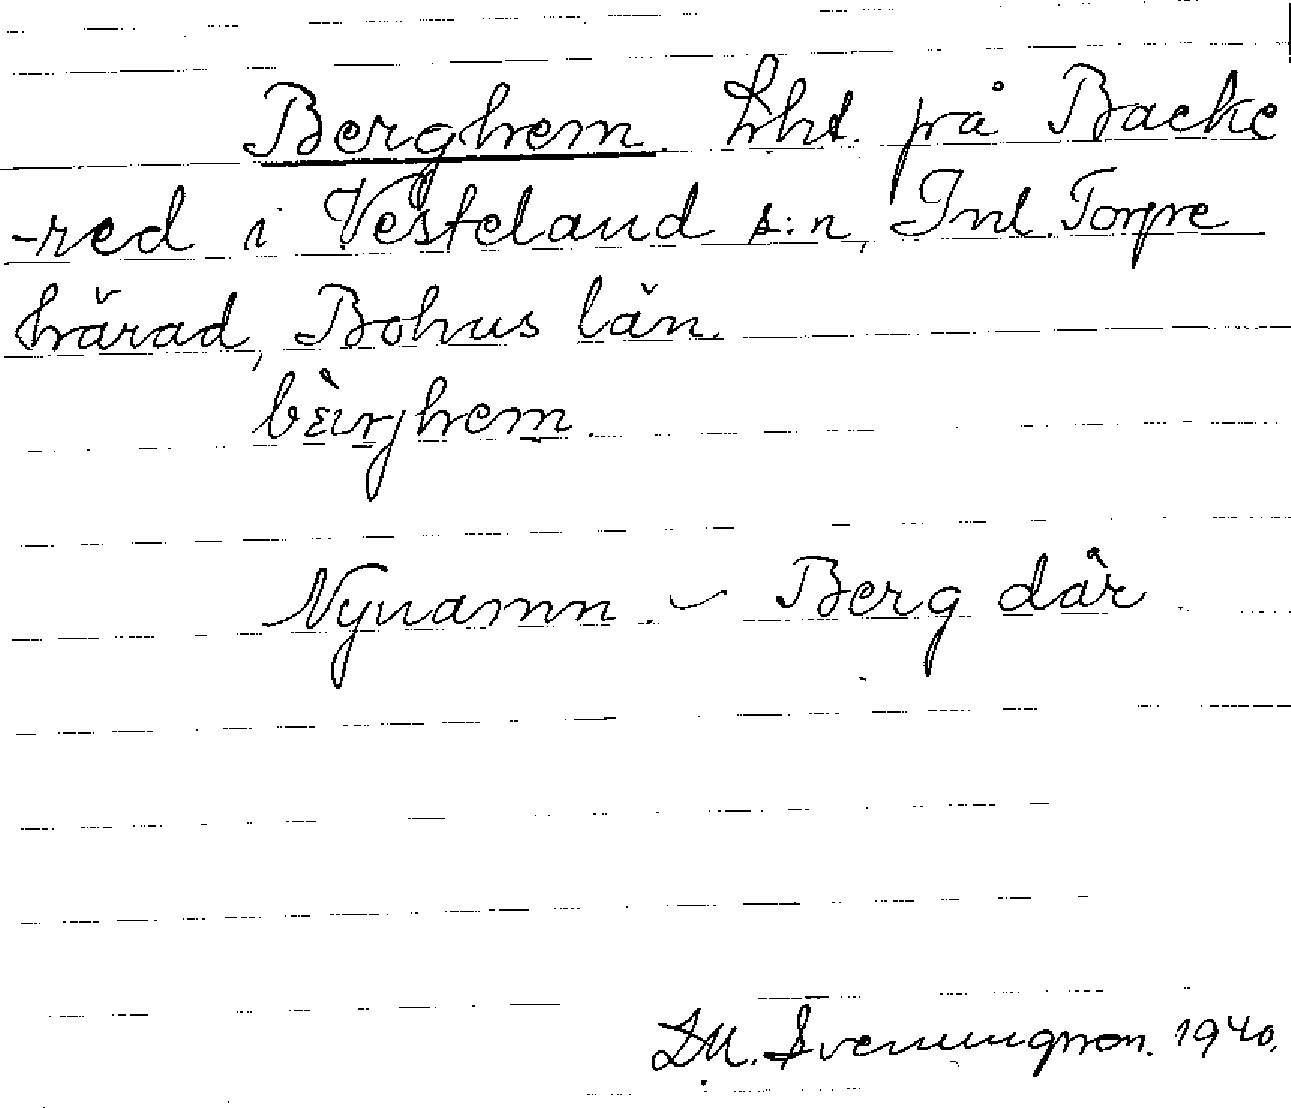 Berghem. Lht. på Backe
-red i Vesteland s:n, Inl. Torpe
härad, Bohus län.
Nynamn. - Berg där
D.M. Svenningsson. 1940.